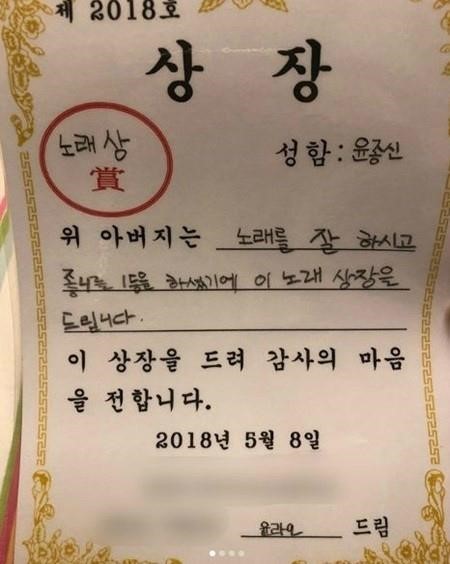 제 2018호
상 장
노래상
賞
성함 : 윤종신
위 아버지는 노래를 잘 하시고
좋니를 1등을 하셨기에 이 노래 상장을
드립니다.
이 상장을 드려 감사의 마음
을 전합니다.
2018년 5월 8일
윤라오 드림